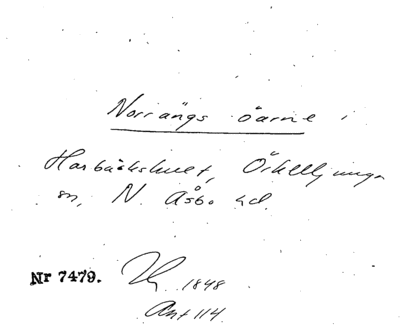 Norrängs öarne i
Harbäckshult, Örkelljunga
sn, N. Åsbo hd.
Nr 7479. 1848
Ant 114.